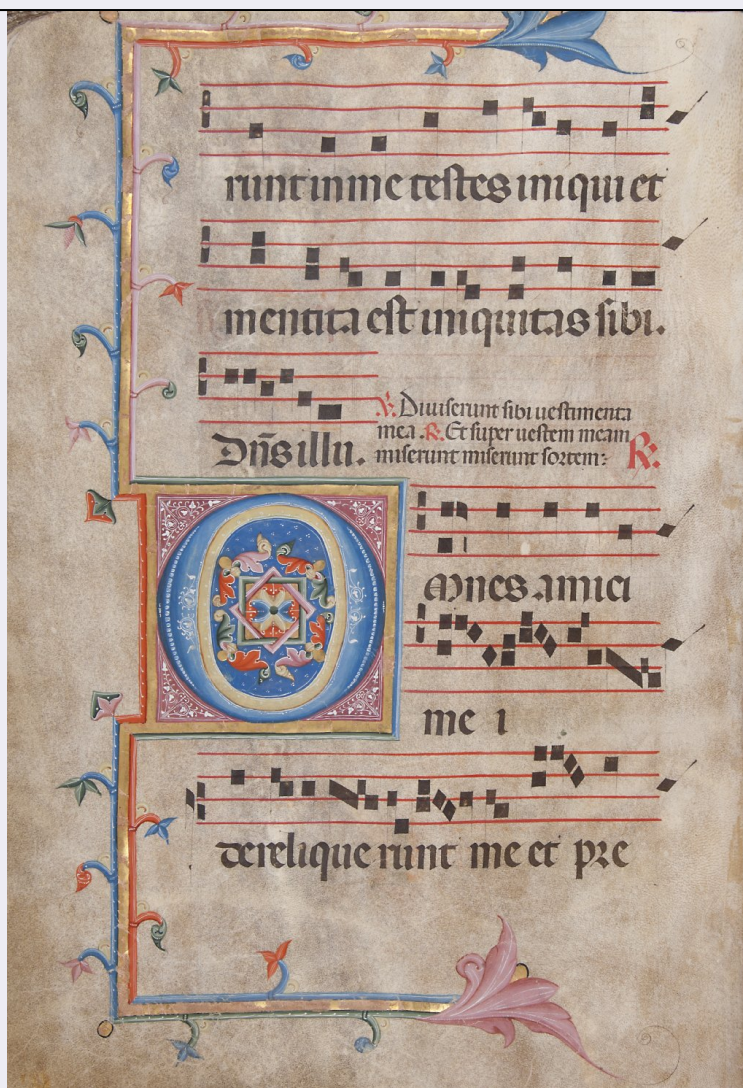 runt in me testes iniqui et
mentita est iniquitas sibi.
Dñs illu.
℣. Diuiserunt sibi uestimenta
mea. ℟. Et super uestem meam
miserunt miserunt sortem: ℟.
Omnes amici
me i
derelique runt me et pre